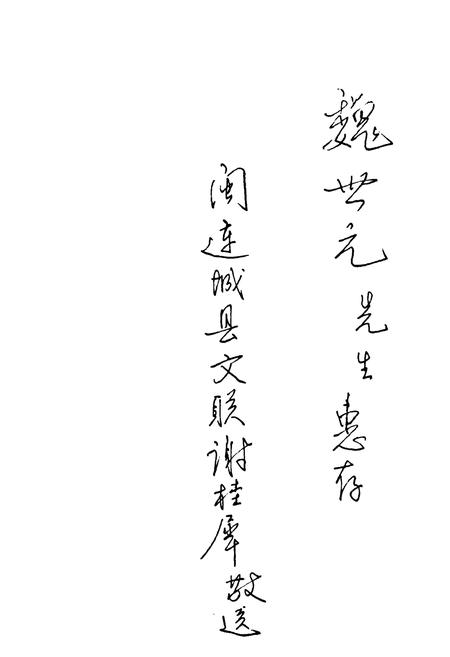 魏世元先生惠存
闽连城县文联谢桂犀敬送